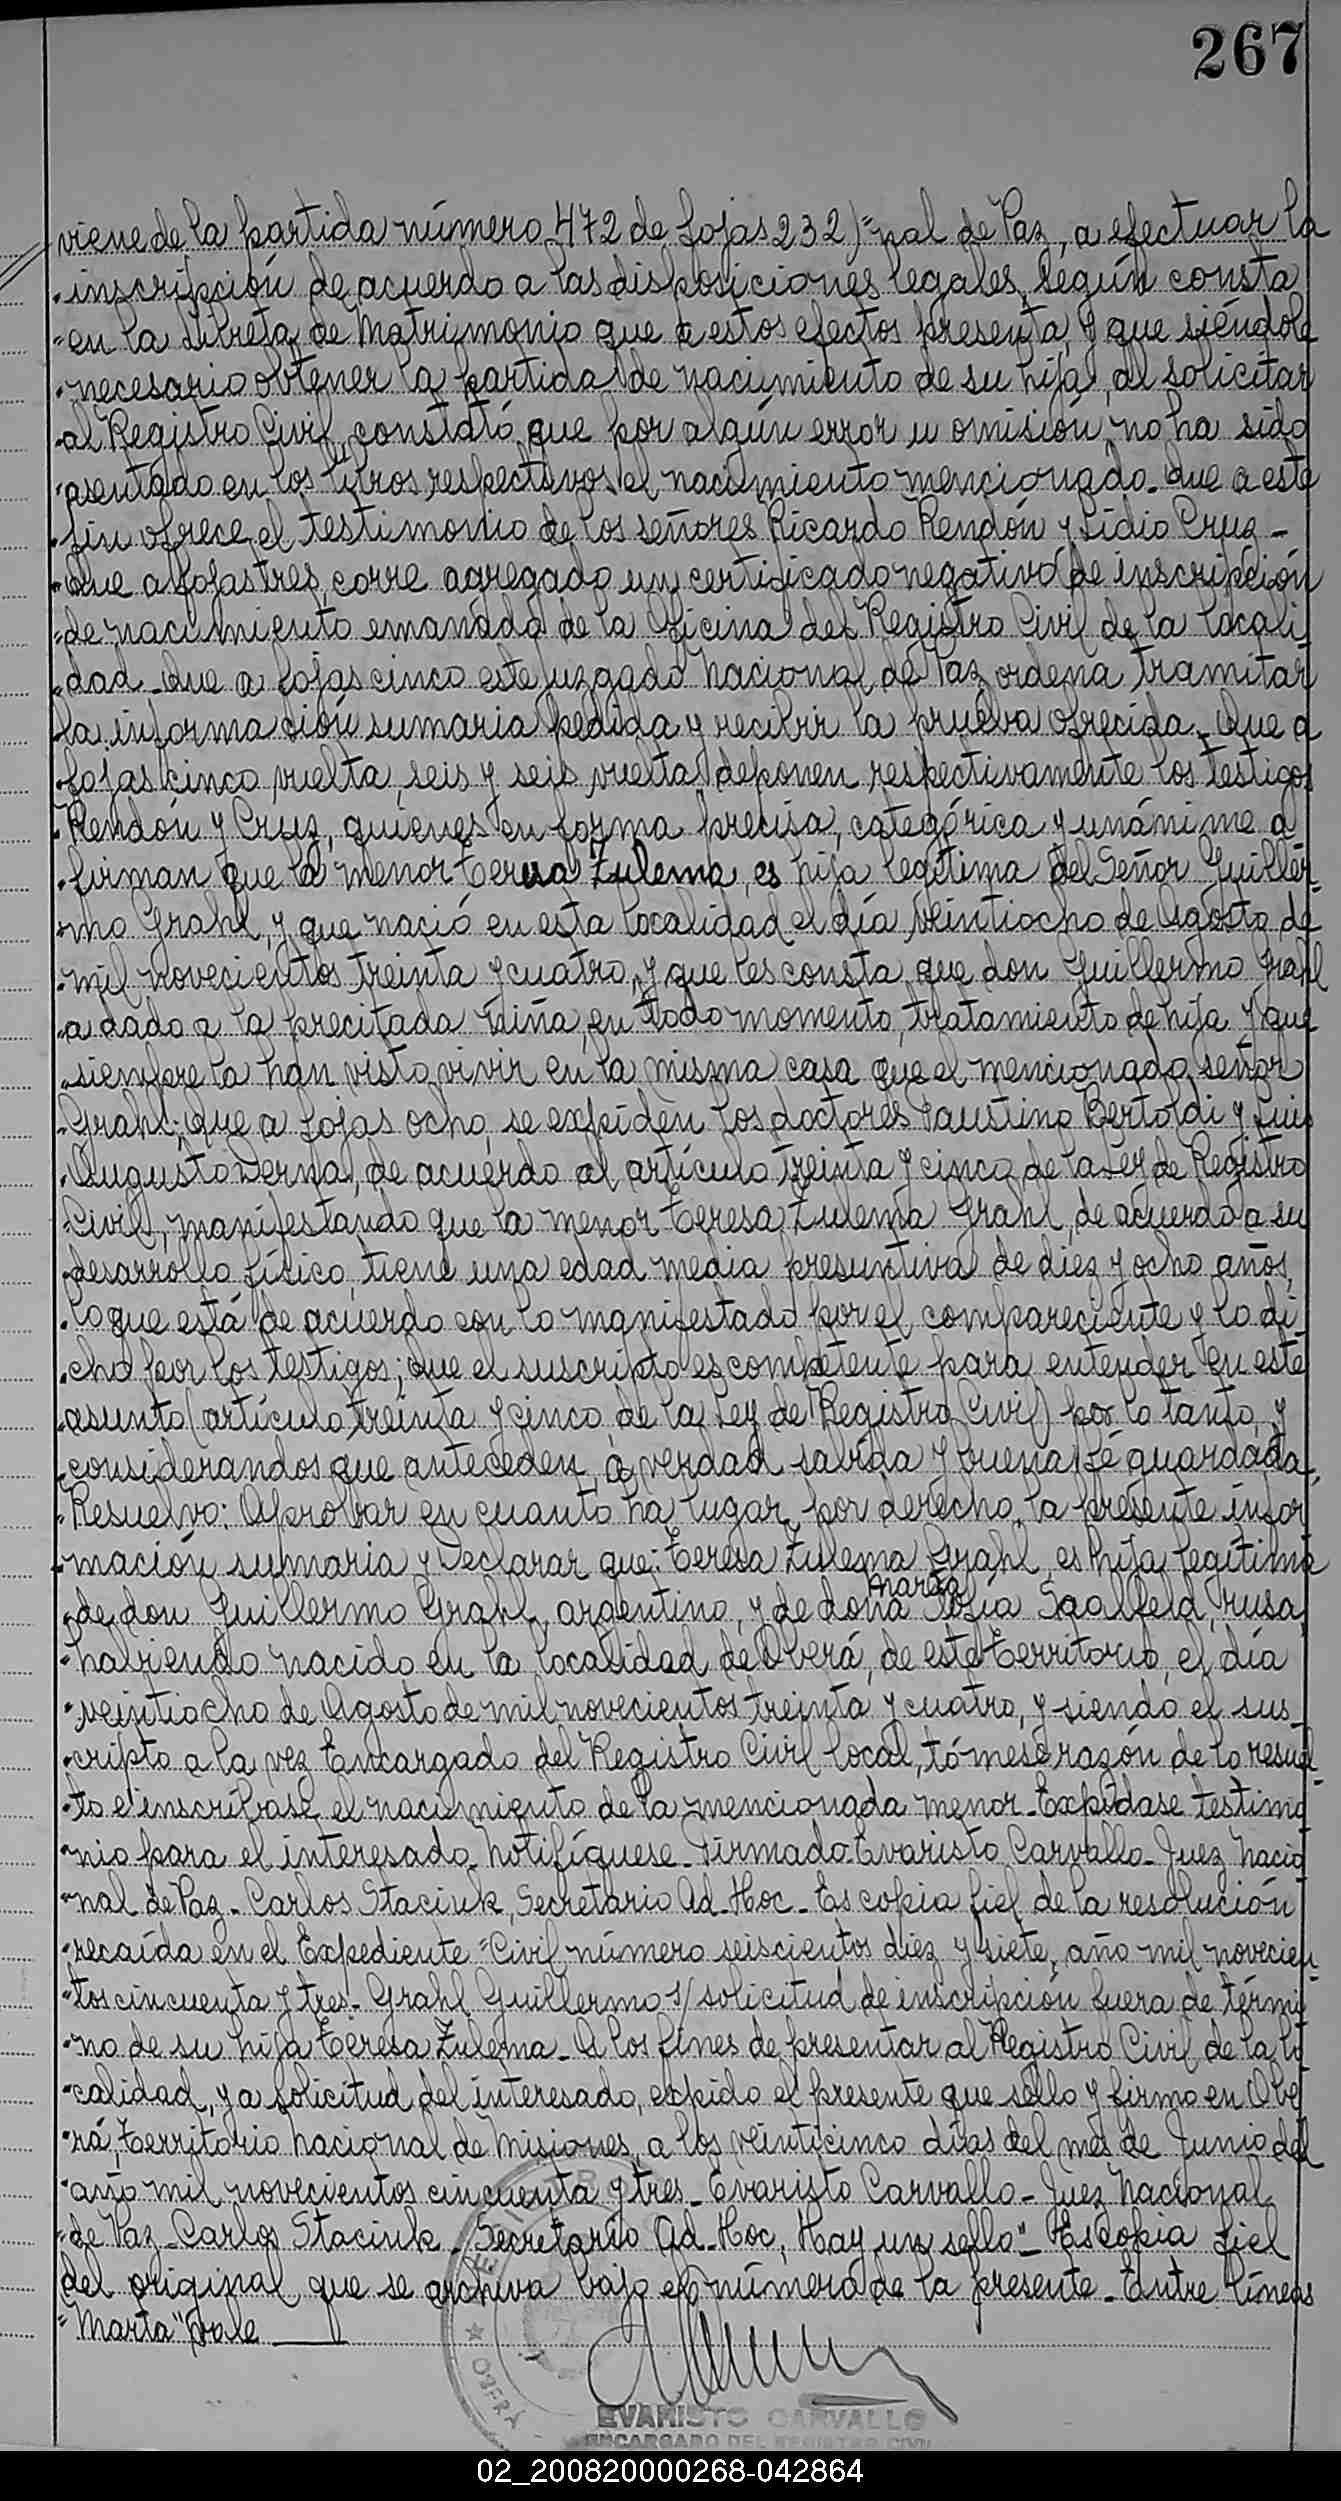 267
viene de la partida número 472 de fojas 232)="nal de Paz, a efectuar la
"inscripción de acuerdo a las disposiciones legales, según consta
"en la Libreta de Matrimonio que a estos efectos presenta, y que siéndole
"necesario obtener la partida de nacimiento de su hija, al solicitar
"al Registro Civil, constató que por algún error u omisión, no ha sido
"asentado en los libros respectivos el nacimiento mencionado. Que a este
"fin ofrece el testimonio de los señores Ricardo Rendón y Lidio Cruz-
"Que a fojas tres, corre agregado un certificado negativo de inscripción
"de nacimiento emanado de la Oficina del Registro Civil de la locali
"dad. Que a fojas cinco este Juzgado Nacional de Paz ordena tramitar
"la información sumaria pedida y recibir la prueba ofrecida. Que a
"fojas cinco vuelta, seis y seis vuelta deponen respectivamente los testigos
"Rendón y Cruz, quienes en forma precisa, categórica y unánime a
"firman que la menor Teresa Zulema, es hija legítima del Señor Guiller-
"mo Grahl, y que nació en esta localidad el día veintiocho de Agosto de
"mil novecientos treinta y cuatro, y que les consta que don Guillermo Grahl
"a dado a la precitada niña, en todo momento, tratamiento de hija y que
"siempre la han visto vivir en la misma casa que el mencionado señor
"Grahl; que a fojas ocho, se expiden los doctores Faustino Bertoldi y Luis
"Augusto Derna, de acuerdo al artículo treinta y cinco de la Ley de Registro
"Civil, manifestando que la menor Teresa Zulema Grahl, de acuerdo a su
"desarrollo físico, tiene una edad media presuntiva de diez y ocho años,
"lo que está de acuerdo con lo manifestado por el compareciente y lo di
"cho por los testigos; que el suscripto es competente para entender en este
"asunto (artículo treinta y cinco de la Ley de Registro Civil) por lo tanto, y
"considerandos que anteceden, a verdad sabida y buena fé guardada,
"Resuelvo: Aprobar en cuanto ha lugar por derecho, la presente infor
"mación sumaria y Declarar que: Teresa Zulema Grahl, es hija legítima
Marta
"de don Guillermo Grahl, argentino, y de doña Sofía Saalfeld, rusa,
"habiendo nacido en la localidad de Oberá, de este Territorio, el día
"veintiocho de Agosto de mil novecientos treinta y cuatro, y siendo el sus_
"cripto a la vez Encargado del Registro Civil local, tómese razón de lo resuel-
"to e inscríbase el nacimiento de la mencionada menor. Expídase testimo
"nio para el interesado. Notifíquese. Firmado. Evaristo Carvallo. Juez Nacio
"nal de Paz. Carlos Staciuk, Secretario Ad-Hoc. Es copia fiel de la resolución
"recaída en el Expediente "Civil número seiscientos diez y siete, año mil novecien-
"tos cincuenta y tres. Grahl Guillermo s/ solicitud de inscripción fuera de térmi
"no de su hija Teresa Zulema. A los fines de presentar al Registro Civil de la lo
"calidad, y a solicitud del interesado, expido el presente que sello y firmo en Obe
"rá, Territorio Nacional de Misiones, a los veinticinco días del mes de Junio del
"año mil novecientos cincuenta y tres. Evaristo Carvallo- Juez Nacional
"de Paz. Carlos Staciuk. Secretario Ad-Hoc, Hay un sello". Es copia fiel
del original que se archiva bajo el número de la presente. Entre líneas
"Marta" Vale
OBERA
EVARISTO CARVALLO
ENCARGADO DEL REGISTRO CIVIL
02_200820000268-042864